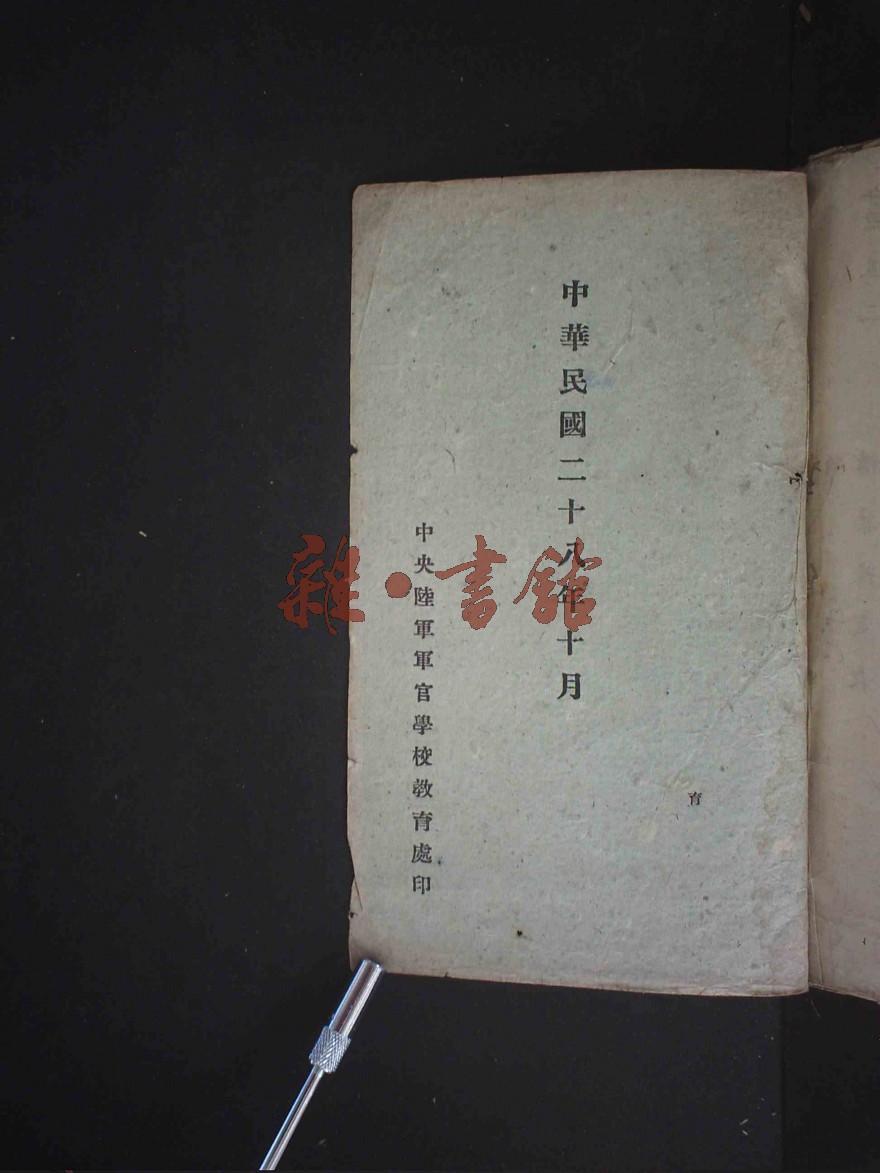 育
中華民國二十八年十月
中央陸軍軍官學校教育處印
雜·書館